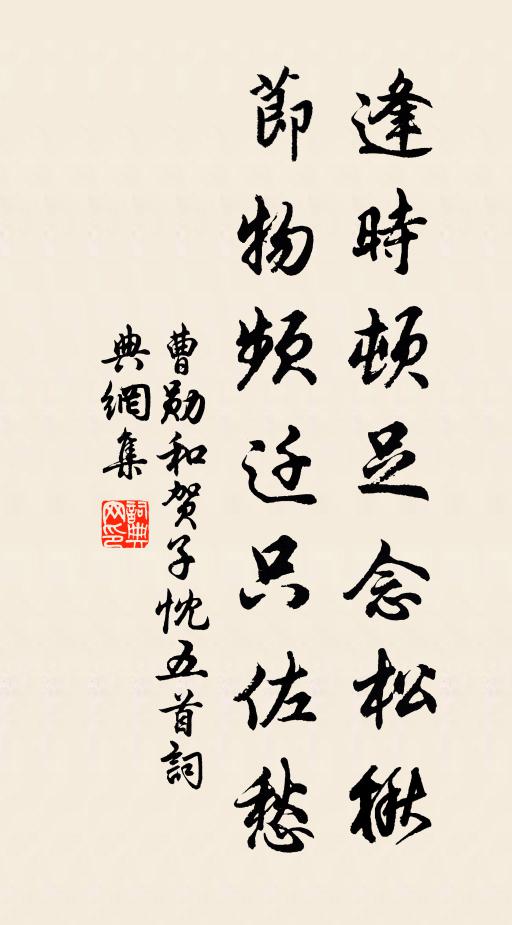 逢時頓足念松楸
節物頻迁只佐愁
曹勛和贺子忱五首詞
典網集
詞典网印